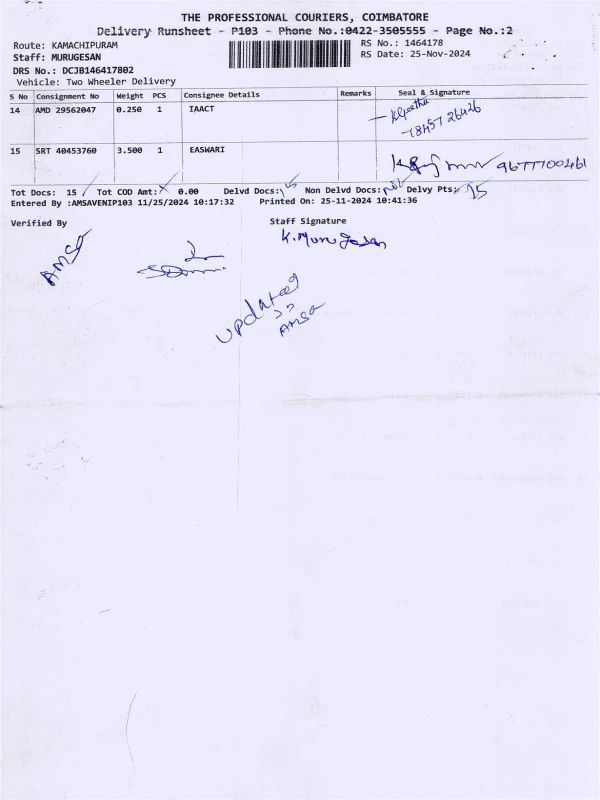 THE PROFESSIONAL COURIERS, COIMBATORE
Delivery Runsheet - P103 - Phone No.:0422-3505555 - Page No.:2
Route: KAMACHIPURAM
RS No.: 1464178
Staff: MURUGESAN
RS Date: 25-Nov-2024
DRS No.: DCJB146417802
Vehicle: Two Wheeler Delivery
S No Consignment No Weight PCS Consignee Details Remarks Seal & Signature
14 AMD 29562047 0.250 1 IAACT
15 SRT 40453760 3.500 1 EASWARI 9677700461
Tot Docs: 15 Tot COD Amt: 0.00 Delvd Docs: 15 Non Delvd Docs: Nil Delvy Pts: 15
Entered By :AMSAVENIP103 11/25/2024 10:17:32 Printed On: 25-11-2024 10:41:36
Verified By Staff Signature
AMSa K.Murugesan
updated
AMSa